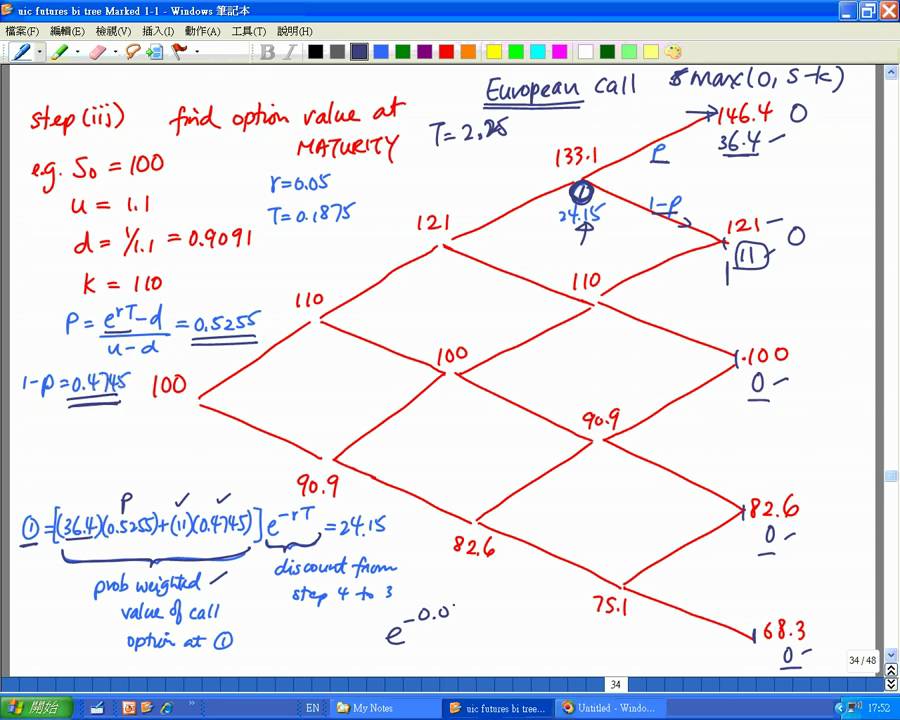 uic futures bi tree Marked 1-1 - Windows 筆記本
檔案(F) 編輯(E) 檢視(V) 插入(I) 動作(A) 工具(T) 說明(H)
B I
European call max(0, S-K)
step(iii) find option value at
MATURITY
T=2.25
e.g. S₀ = 100
u = 1.1
d = 1/1.1 = 0.9091
k = 110
r=0.05
T=0.1875
P = e^rT - d / u - d = 0.5255
1-P = 0.4745
100
110
90.9
121
100
82.6
133.1
1
24.15
110
90.9
75.1
P
1-P
146.4 0
36.4
121 0
11
100
0
82.6
0
68.3
0
P
① = [(36.4)(0.5255)+(11)(0.4745)] e^-rT = 24.15
prob weighted
value of call
option at ①
discount from
step 4 to 3
e^-0.0
34 / 48
34
開始
EN
My Notes
uic futures bi tree...
Untitled - Windows...
17:52